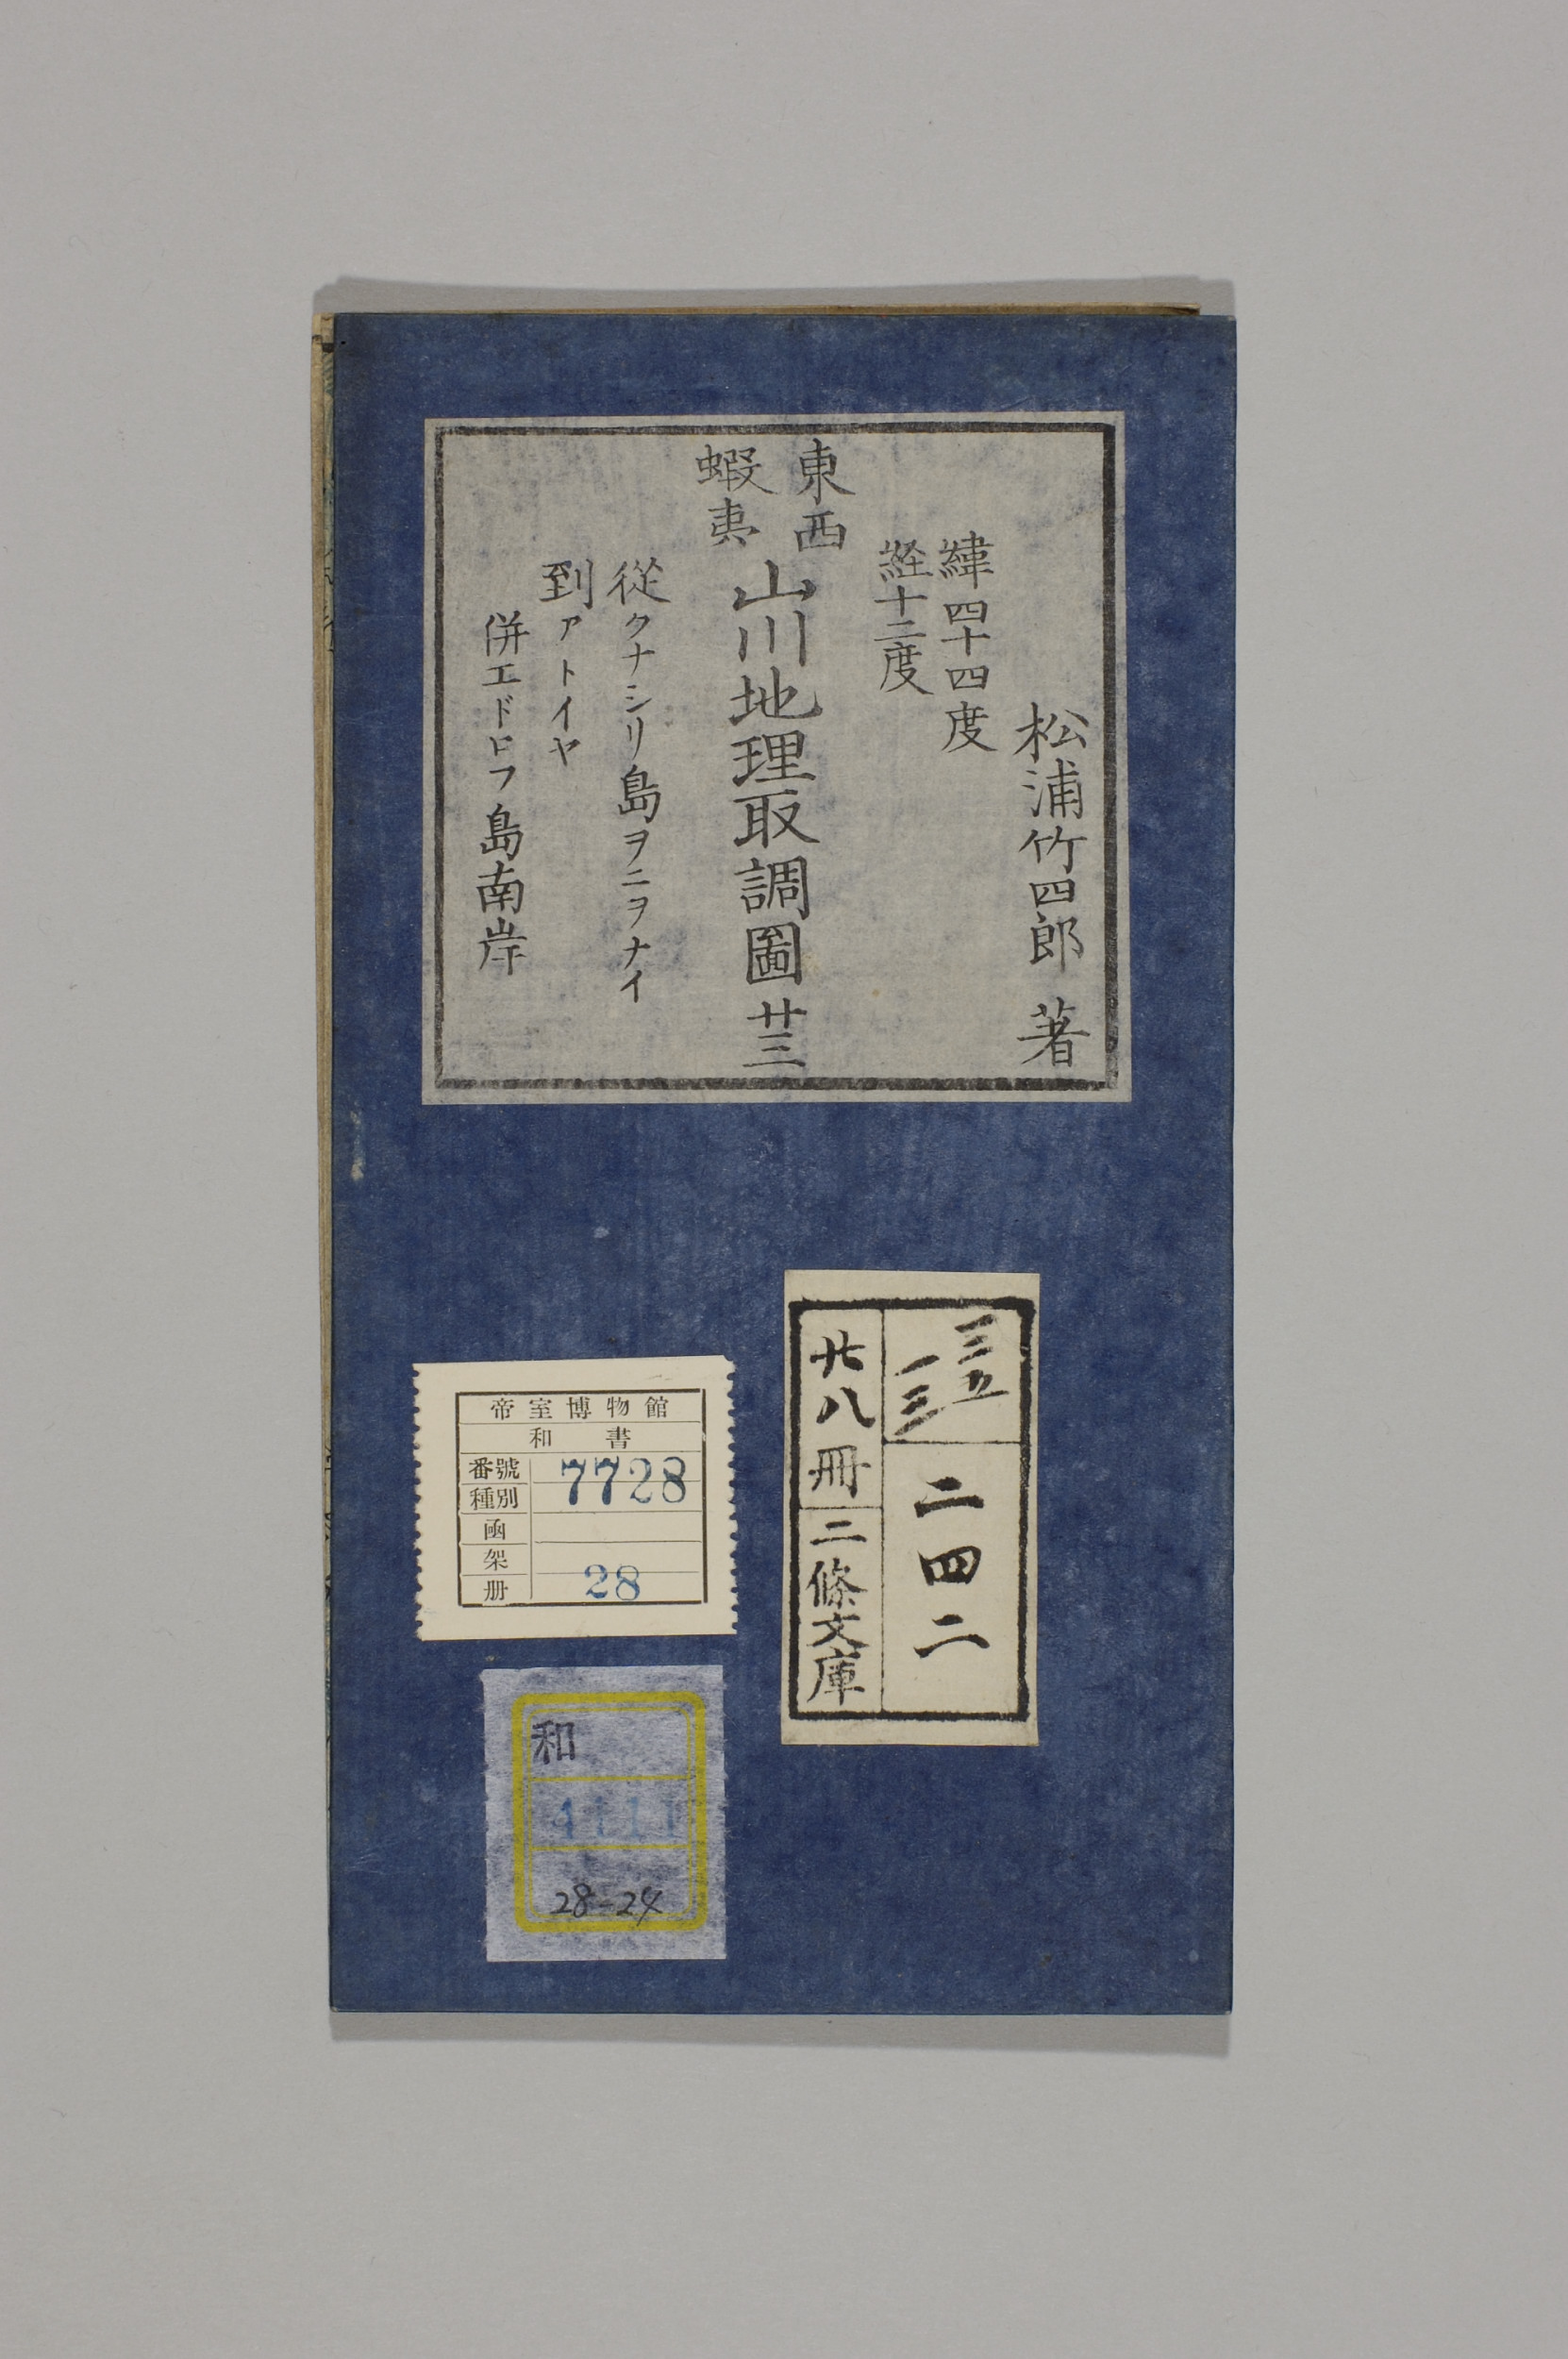 松浦竹四郎 著
緯四十四度
経十二度
東西
蝦夷
山川地理取調圖 廿三
從クナシリ島ヲニヲナイ
到アトイヤ
併エドロフ島南岸
三五
一三
二四二
廿八冊
二條文庫
帝室博物館
和書
番號 7728
種別
函
架
册 28
和
4111
28-24